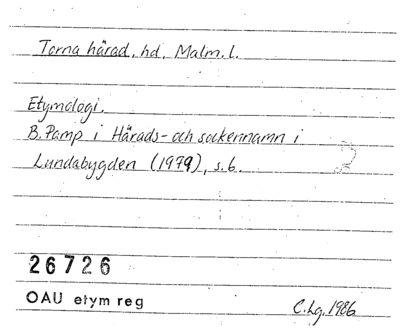 Torna härad, hd, Malm. l.
Etymologi.
B. Pamp i Härads- och sockennamn i
Lundabygden (1979), s. 6.
26726
OAU etym reg
C. Lg. 1986